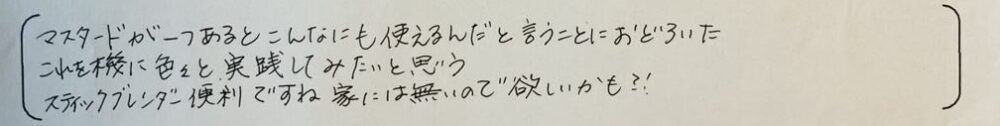 マスタードが一つあるとこんなにも使えるんだと言うことにおどろいた
これを機に色々と実践してみたいと思う
スティックブレンダー便利ですね 家には無いので欲しいかも?!